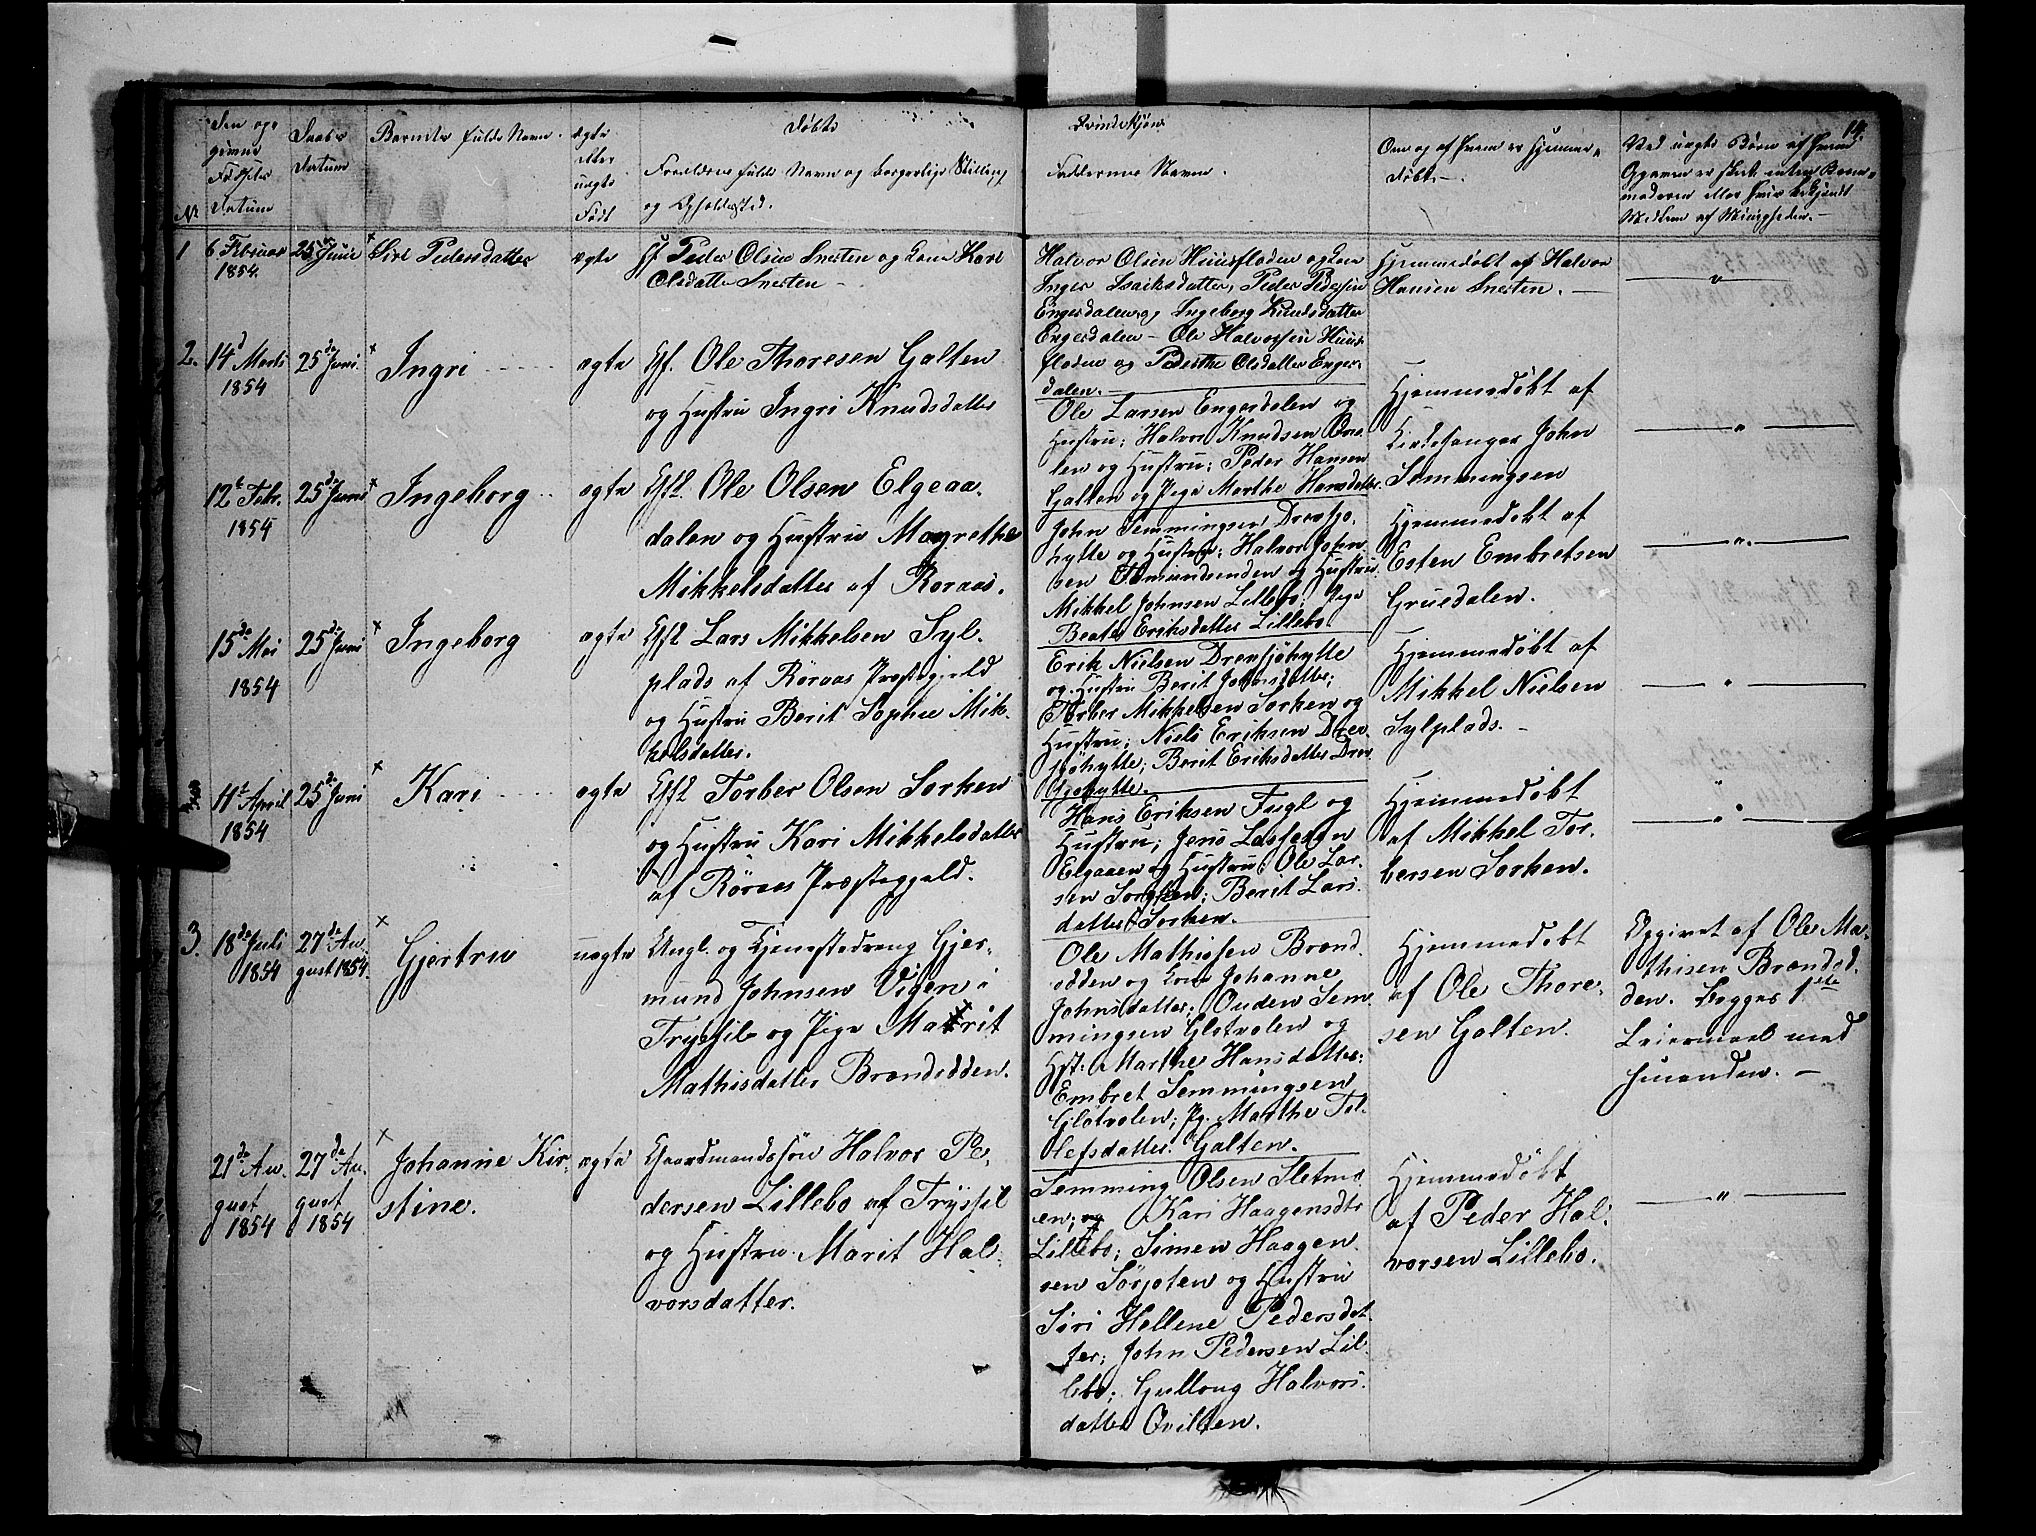 Døbte
Qvindekjøn
14.
Nr
Den op-
givne
Fødsels
Datum
Daabs
Datum
Barnets fulde Navn.
ægte
eller
uægte
Født
Forældres fulde Navn og borgerlige Stilling
og Opholdssted.
Faddernes Navne.
Om og af hvem er hjemme-
døbt.
Ved uægte Børn af hvem
Opgaven er skeet enten Barne-
moderen eller hvis bekjendt
1
6 Februar
1854.
25 Junie
Siri Pedersdatter
ægte
Gf. Peder Olsen Snerten og Kone Kari
Olsdatter Snerten
Halvor Olsen Huusfloden og Kone
Inger Isaksdatter, Peder Pedersen
Engerdalen og Ingeborg Knudsdatter
Engerdalen - Ole Halvorsen Huus-
floden og Berthe Olsdatter Enger-
dalen.
Hjemmedøbt af Halvor
Hansen Snerten.
2.
14d Marts
1854
25de Juni
Ingri
ægte
Gf. Ole Thoresen Galten
og Hustru Ingri Knudsdatter
Ole Larsen Engerdalen og
Hustru; Halvor Knudsen
og Hustru; Peder Hansen
Galten og Pige Marthe Hansdatter.
Hjemmedøbt af
Kirkesanger John
Semmingsen
12te Febr.
1854
25de Juni
Ingeborg
ægte
Gf. Ole Olsen Elgeaa-
dalen og Hustru Magrethe
Mikkelsdatter af Roraas.
John Semmingsen Drevsjø-
hytte og Hustru; Halvor John-
sen Osmundsenden og Hustru;
Mikkel Johnsen Lillebo; Pige
Beate Eriksdatter Lillebo
Hjemmedøbt af
Esten Embretsen
Gruedalen.
15de Mai
1854
25de Juni
Ingeborg
ægte
Gf. Lars Mikkelsen Syl-
plads af Røraas Præstegjeld
og Hustru Berit Sophie Mik-
kelsdatter.
Erik Nielsen Drevsjøhytte
og Hustru Berit Johnsdatter;
Torber Mikkelsen Sorken og
Hustru; Niels Eriksen Drev-
sjøhytte; Berit Eriksdatter Drev-
sjøhytte.
Hjemmedøbt af
Mikkel Nielsen
Sylplads.
11te April
1854
25de Juni
Kari
ægte
Gf. Torber Olsen Sorken
og Hustru Kari Mikkelsdatter
af Røraas Præstegjeld.
Hans Eriksen Fugl og
Hustru; Jens
Elgaaen og Hustru; Ole Lar-
sen Sorken; Berit Lars-
datter Sorken.
Hjemmedøbt
af Mikkel Tor-
bersen Sorken.
3.
18de Juli
1854
27de Au-
gust 1854.
Gjertru
uægte
Ungk. og Tjenestedreng Gjer-
mund Johnsen Vigen i
Trysil og Pige Marit
Mathisdatter Brændodden.
Ole Mathissen Brænd-
odden og Kone Johanne
Johnsdatter; Ouden Sem-
mingsen Gløtvolen og
Hst. Marthe Hansdatter;
Embret Semmingsen
Gløtvolen; Pg. Marthe Tol-
lefsdatter Galten.
Hjemmedøbt
af Ole Thore-
sen Galten.
Opgivet af Ole Ma-
thisen Brændod-
den. Begges 1ste
Leiermaal med
hinanden.
21de Au-
gust
1854
27de Au-
gust
1854
Johanne Kir-
stine.
ægte
Gaardmandssøn Halvor Pe-
dersen Lillebo af Tryssil
og Hustru Marit Hal-
vorsdatter.
Semming Olsen Sletmo-
en; og Kari Haagensdtr
Lillebo; Simen Haagen-
sen Sørjoten og Hustru
Siri Hellene Pedersdat-
ter; John Pedersen Lil-
lebo; Gullaug Halvors-
datter Qvilten.
Hjemmedøbt
af Peder Hal-
vorsen Lillebo.